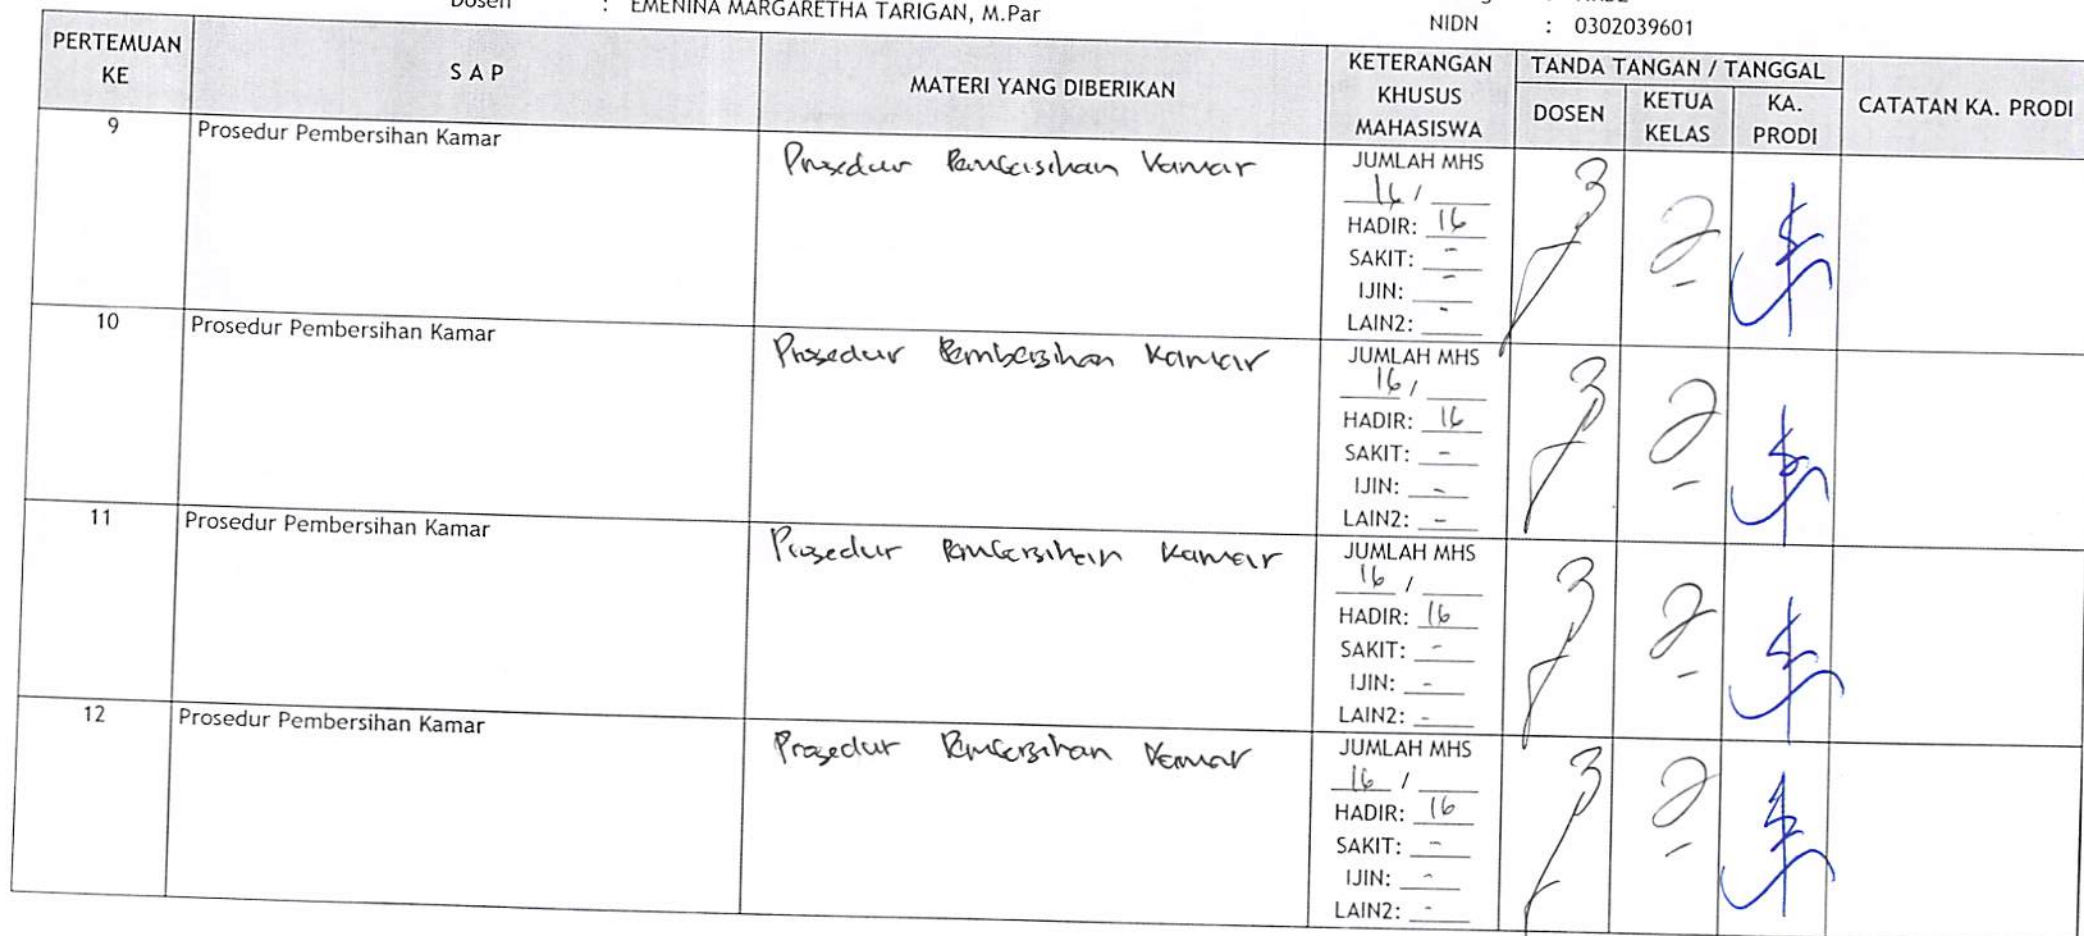 Dosen : EMENINA MARGARETHA TARIGAN, M.Par
NIDN : 0302039601
PERTEMUAN KE
S A P
MATERI YANG DIBERIKAN
KETERANGAN KHUSUS MAHASISWA
TANDA TANGAN / TANGGAL
DOSEN
KETUA KELAS
KA. PRODI
CATATAN KA. PRODI
9
Prosedur Pembersihan Kamar
Prosedur Pembersihan Kamar
JUMLAH MHS
16 /
HADIR: 16
SAKIT: -
IJIN: -
LAIN2: -
10
Prosedur Pembersihan Kamar
Prosedur Pembersihan Kamar
JUMLAH MHS
16 /
HADIR: 16
SAKIT: -
IJIN: -
LAIN2: -
11
Prosedur Pembersihan Kamar
Prosedur Pembersihan Kamar
JUMLAH MHS
16 /
HADIR: 16
SAKIT: -
IJIN: -
LAIN2: -
12
Prosedur Pembersihan Kamar
Prosedur Pembersihan Kamar
JUMLAH MHS
16 /
HADIR: 16
SAKIT: -
IJIN: -
LAIN2: -